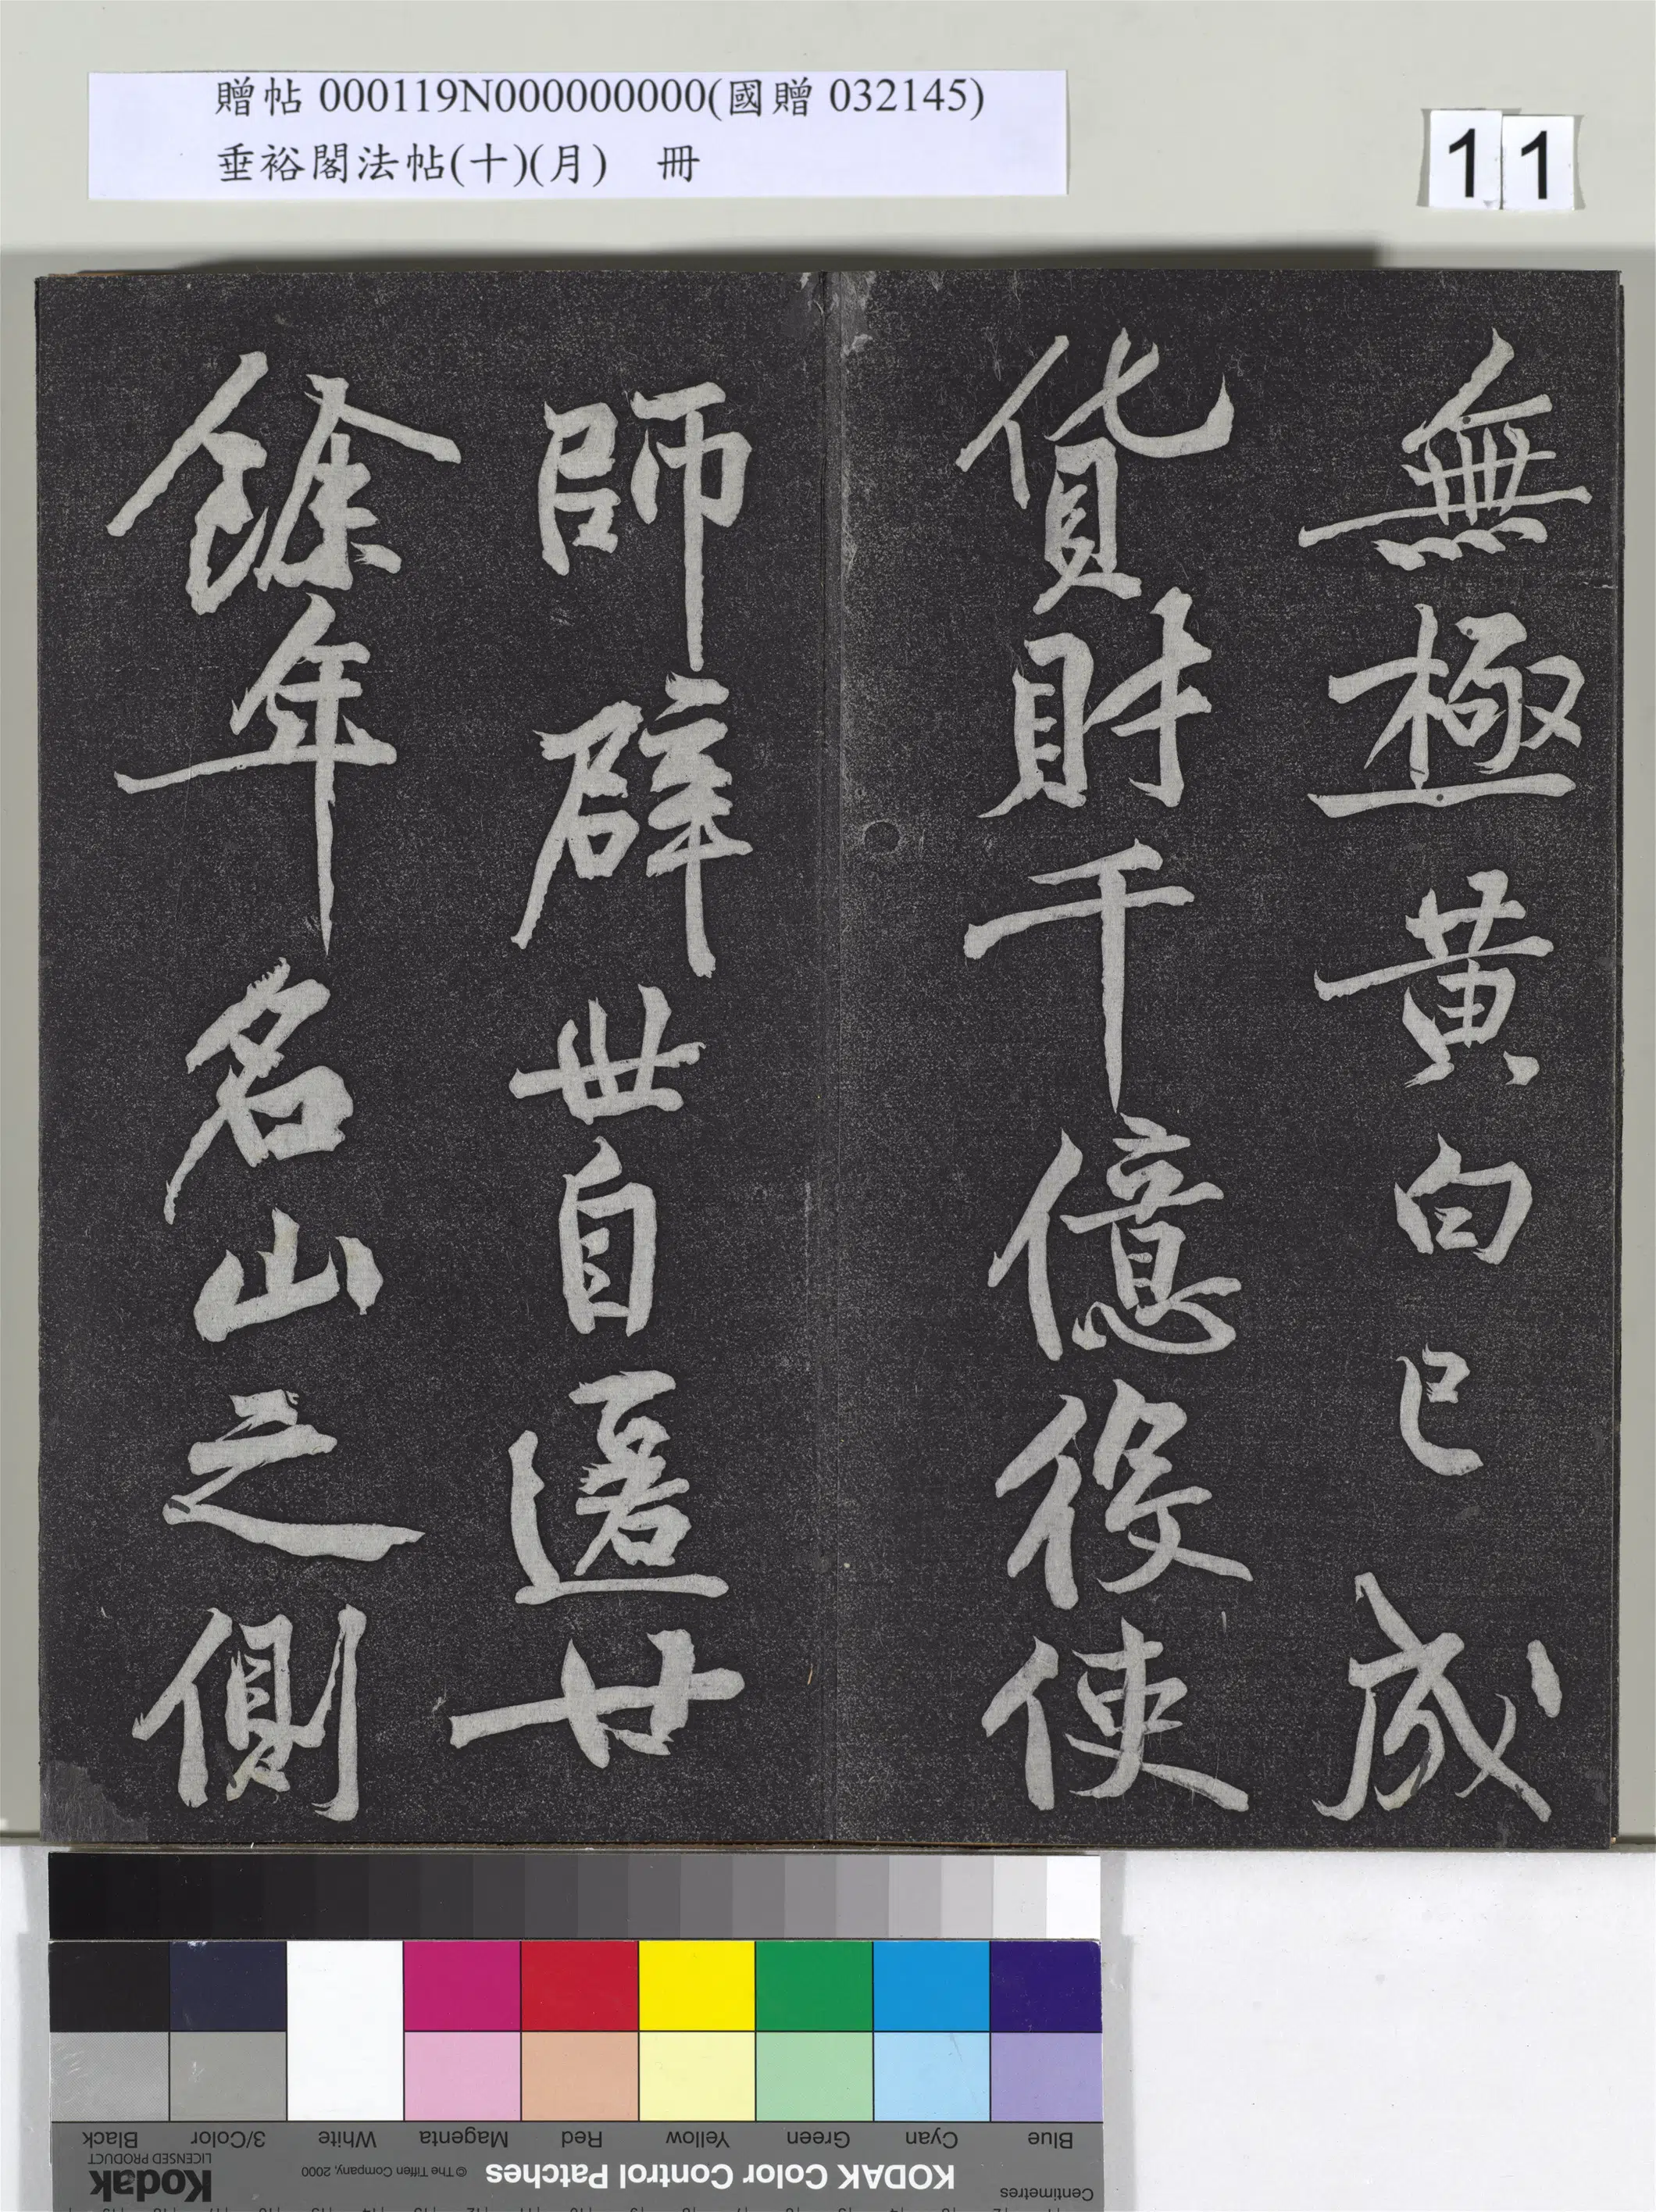 贈帖 000119N000000000(國贈 032145)
垂裕閣法帖(十)(月) 冊
11
無極黃白已成
貨財千億役使
師辟世自匿廿
餘年名山之側
Blue Cyan Green Yellow Red Magenta White 3/Color Black
Centimetres
KODAK Color Control Patches
© The Tiffen Company, 2000
Kodak
LICENSED PRODUCT